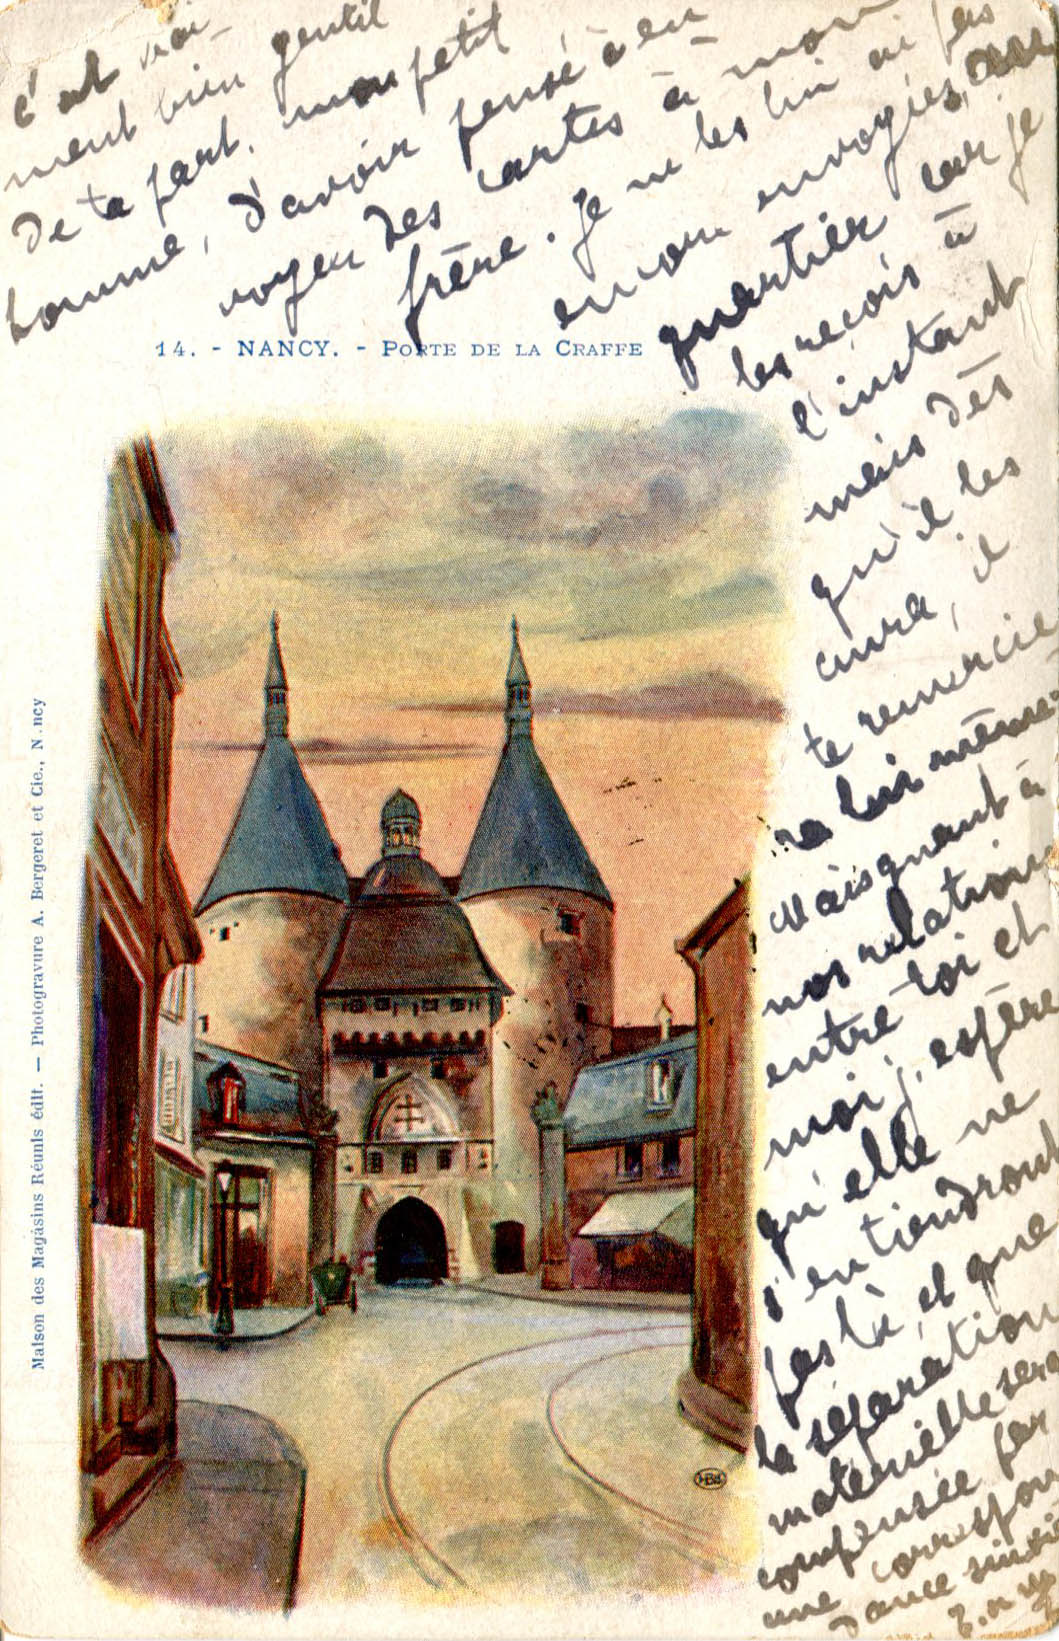 c'est vrai-
ment bien gentil
de ta part, mon petit
homme, d'avoir pensé à en
voyer des cartes à mon
frère. Je ne les lui ai pas
encore envoyées, au
quartier car je
les reçois à
l'instant
mais dès
qu'il les
aura, il
te remercie
ra lui même
Mais quant à
nos relations
entre toi et
moi, j'espère
qu'elle ne
s'en tiendront
pas là, et que
la séparation
matérielle sera
compensée par
une correspon
dance
14. - NANCY. - PORTE DE LA CRAFFE
Maison des Magasins Réunis édit. — Photogravure A. Bergeret et Cie., Nancy